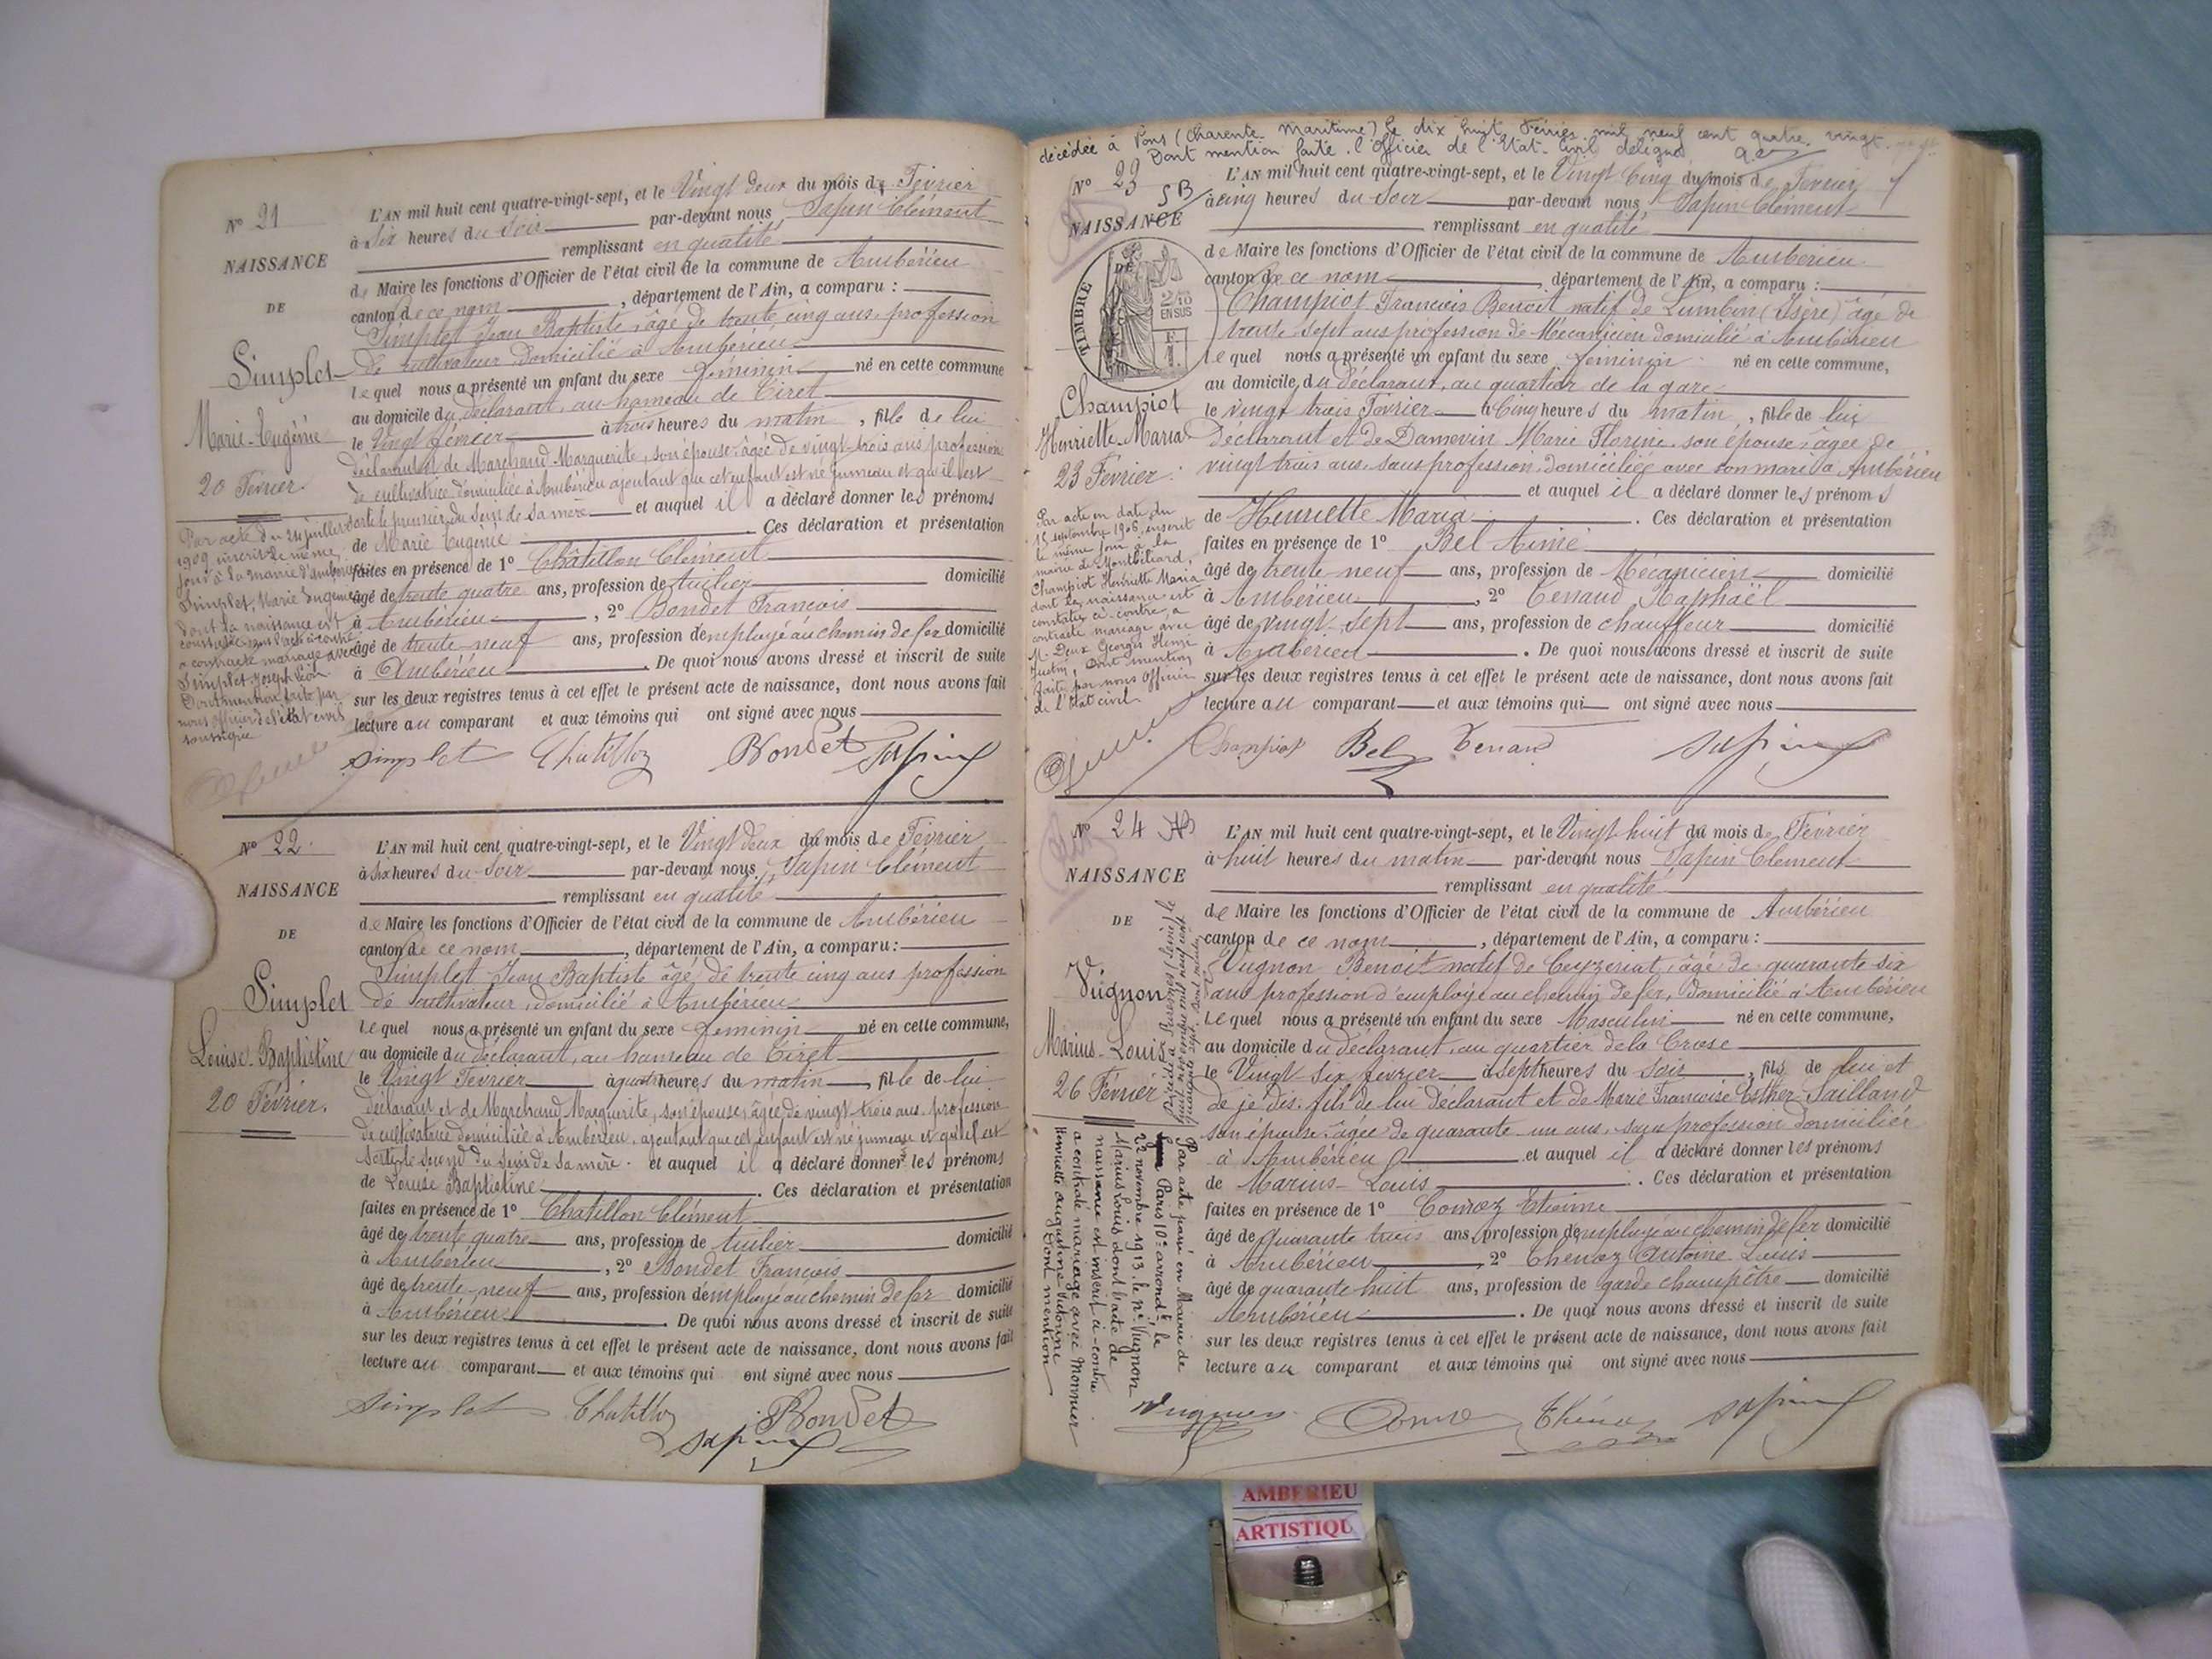 Nº 21
NAISSANCE
DE
Simplet
Marie-Eugénie
20 Février.
Par acte du 24 juillet
1909 inscrit le même
jour à la mairie d'Ambérieu
Simplet, Marie Eugénie
dont la naissance est
constatée par l'acte ci-contre
a contracté mariage avec
Simplet Joseph Léon
Dont mention faite par
nous officier de l'état civil
soussigné
L'AN mil huit cent quatre-vingt-sept, et le Vingt deux du mois de Février
à Six heures du Soir par-devant nous Sapin Clément
remplissant en qualité
de Maire les fonctions d'Officier de l'état civil de la commune de Ambérieu
canton de ce nom, département de l'Ain, a comparu :
Simplet Jean Baptiste, âgé de trente cinq ans, profession
de cultivateur, domicilié à Ambérieu
lequel nous a présenté un enfant du sexe féminin né en cette commune
au domicile du déclarant, au hameau de Tiret
le Vingt février à trois heures du matin, fille de lui
déclarant et de Marchand Marguerite, son épouse, âgée de vingt-trois ans profession
de cultivatrice domiciliée à Ambérieu ajoutant que cet enfant est né jumeau et qu'il est
sorti le premier du sein de sa mère et auquel il a déclaré donner les prénoms
de Marie Eugénie Ces déclaration et présentation
faites en présence de 1º Châtillon Clément
âgé de trente quatre ans, profession de tuilier domicilié
à Ambérieu, 2º Bondet François
âgé de trente neuf ans, profession d'employé au chemin de fer domicilié
à Ambérieu. De quoi nous avons dressé et inscrit de suite
sur les deux registres tenus à cet effet le présent acte de naissance, dont nous avons fait
lecture au comparant et aux témoins qui ont signé avec nous
Simplet Chatillon Bondet Sapin
Nº 22
NAISSANCE
DE
Simplet
Louise-Baptistine
20 Février.
L'AN mil huit cent quatre-vingt-sept, et le Vingt deux du mois de Février
à Six heures du Soir par-devant nous Sapin Clément
remplissant en qualité
de Maire les fonctions d'Officier de l'état civil de la commune de Ambérieu
canton de ce nom, département de l'Ain, a comparu :
Simplet Jean Baptiste âgé de trente cinq ans profession
de cultivateur, domicilié à Ambérieu
lequel nous a présenté un enfant du sexe féminin né en cette commune,
au domicile du déclarant, au hameau de Tiret
le Vingt Février à quatre heures du matin, fille de lui
déclarant et de Marchand Marguerite, son épouse, âgée de vingt-trois ans profession
de cultivatrice domiciliée à Ambérieu, ajoutant que cet enfant est né jumeau et qu'il est
sorti le second du sein de sa mère. et auquel il a déclaré donner les prénoms
de Louise Baptistine. Ces déclaration et présentation
faites en présence de 1º Chatillon Clément
âgé de trente quatre ans, profession de tuilier domicilié
à Ambérieu, 2º Bondet François
âgé de trente-neuf ans, profession d'employé au chemin de fer domicilié
à Ambérieu. De quoi nous avons dressé et inscrit de suite
sur les deux registres tenus à cet effet le présent acte de naissance, dont nous avons fait
lecture au comparant et aux témoins qui ont signé avec nous
Simplet Chatillon Bondet
Sapin
décédée à Pons (Charente-Maritime) le dix huit Février mil neuf cent quatre vingt
Dont mention faite. l'Officier de l'Etat-Civil délégué
Nº 23 SB
NAISSANCE
DE
TIMBRE
2/10
EN SUS
Champiot
Henriette-Maria
23 Février.
Par acte en date du
15 septembre 1906, inscrit
le même jour à la
mairie de Montbéliard,
Champiot Henriette Maria
dont la naissance est
constatée ci-contre, a
contracté mariage avec
M. Deux Georges Henri
Justin, Dont mention
faite par nous Officier
de l'Etat civil
L'AN mil huit cent quatre-vingt-sept, et le Vingt Cinq du mois de Février
à cinq heures du Soir par-devant nous Sapin Clément
remplissant en qualité
de Maire les fonctions d'Officier de l'état civil de la commune de Ambérieu
canton de ce nom, département de l'Ain, a comparu :
Champiot François Benoit natif de Lumbin (Isère) âgé de
trente-sept ans profession de Mécanicien domicilié à Ambérieu
lequel nous a présenté un enfant du sexe féminin né en cette commune,
au domicile du déclarant, au quartier de la gare
le vingt trois Février à Cinq heures du matin, fille de lui
déclarant et de Damevin Marie Florine son épouse, âgée de
vingt trois ans, sans profession, domiciliée avec son mari à Ambérieu
et auquel il a déclaré donner les prénoms
de Henriette Maria. Ces déclaration et présentation
faites en présence de 1º Bel Aimé
âgé de trente neuf ans, profession de Mécanicien domicilié
à Ambérieu, 2º Tenand Raphaël
âgé de vingt-sept ans, profession de chauffeur domicilié
à Ambérieu. De quoi nous avons dressé et inscrit de suite
sur les deux registres tenus à cet effet le présent acte de naissance, dont nous avons fait
lecture au comparant et aux témoins qui ont signé avec nous
Champiot Bel Tenand Sapin
Nº 24
NAISSANCE
DE
Vugnon
Marius-Louis
26 Février
Décédé à Suresnes (Seine) le
vingt novembre mil neuf cent
quarante sept. Dont mention
Par acte passé en Mairie de
Paris 10e arrondt le
22 novembre 1913 le né Vugnon
Marius Louis dont l'acte de
naissance est inscrit ci-contre
a contracté mariage avec Monnier
Henriette Augustine Victorine
Dont mention
L'AN mil huit cent quatre-vingt-sept, et le Vingt huit du mois de Février
à huit heures du matin par-devant nous Sapin Clément
remplissant en qualité
de Maire les fonctions d'Officier de l'état civil de la commune de Ambérieu
canton de ce nom, département de l'Ain, a comparu :
Vugnon Benoit natif de Ceyzeriat, âgé de quarante-six
ans profession d'employé au chemin de fer, domicilié à Ambérieu
lequel nous a présenté un enfant du sexe Masculin né en cette commune,
au domicile du déclarant, au quartier de la Croze
le Vingt-six février à sept heures du Soir, fils de lui et
de je dis. fils de lui déclarant et de Marie Françoise Esther Sailland
son épouse âgée de quarante un ans, sans profession domiciliée
à Ambérieu et auquel il a déclaré donner les prénoms
de Marius-Louis. Ces déclaration et présentation
faites en présence de 1º Etienne
âgé de quarante trois ans, profession d'employé au chemin de fer domicilié
à Ambérieu, 2º Thenoz Antoine Louis
âgé de quarante huit ans, profession de garde champêtre domicilié
Ambérieu. De quoi nous avons dressé et inscrit de suite
sur les deux registres tenus à cet effet le présent acte de naissance, dont nous avons fait
lecture au comparant et aux témoins qui ont signé avec nous
Vugnon Sapin
AMBERIEU
ARTISTIQU